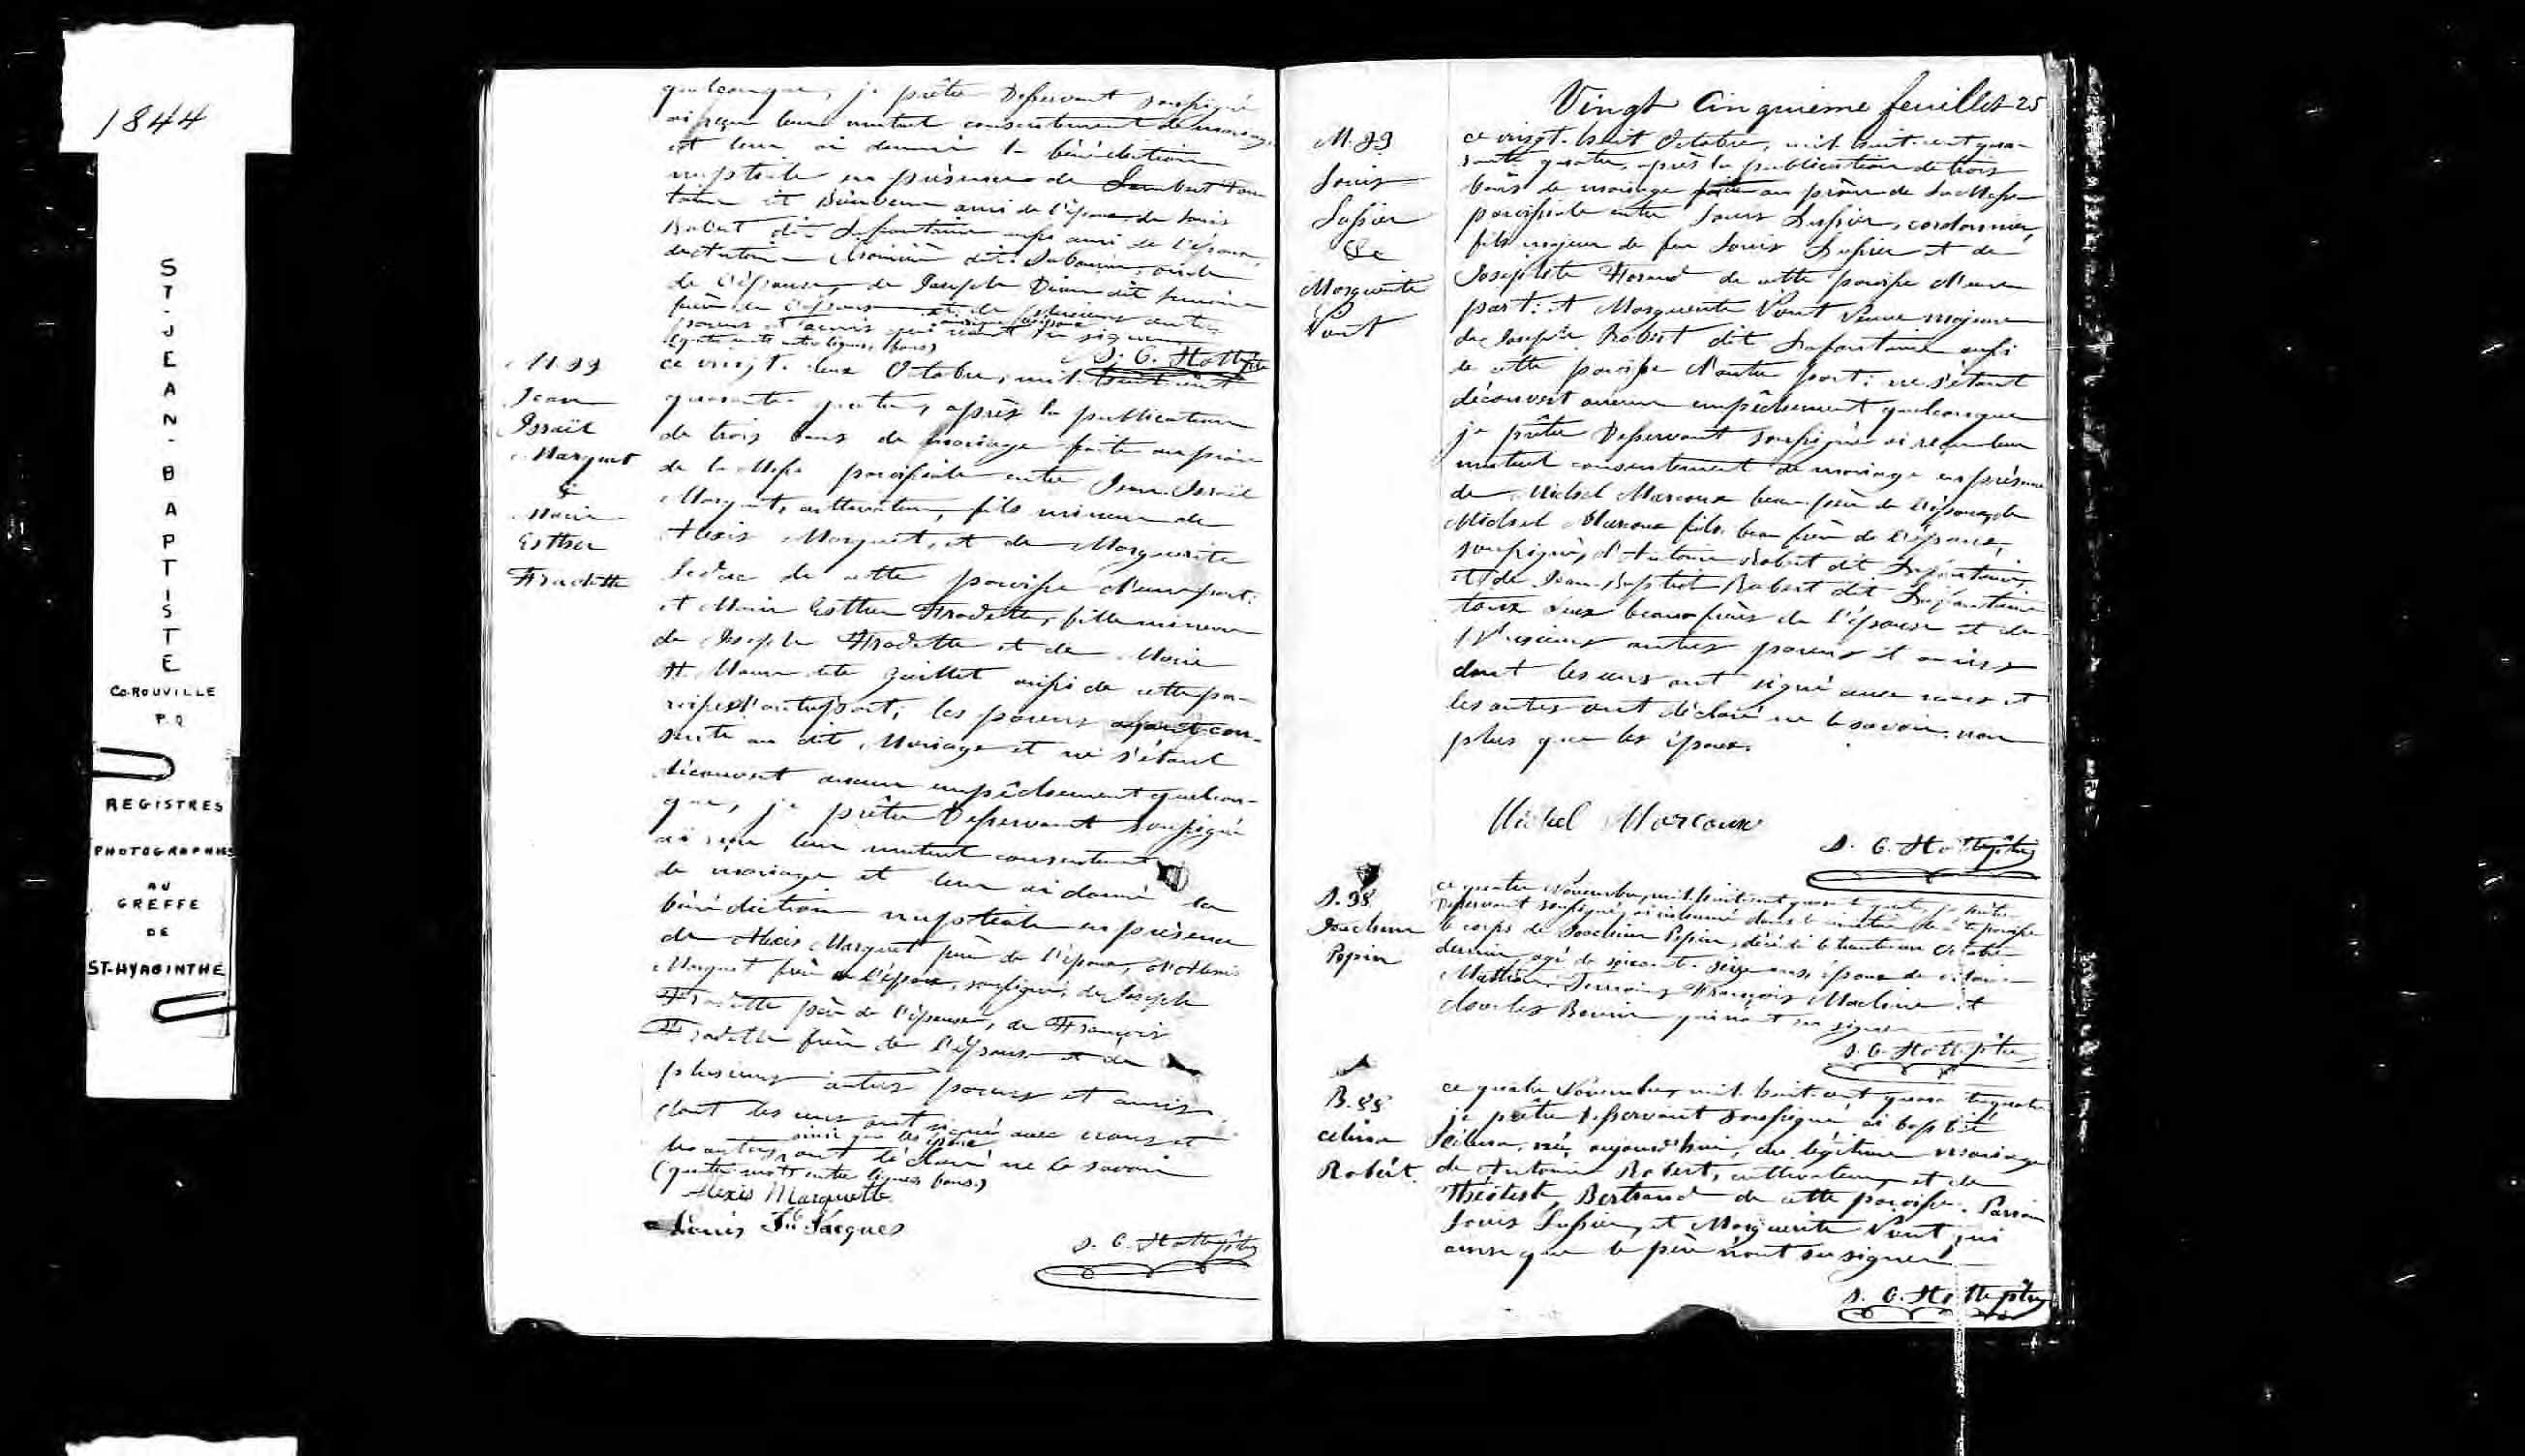 1844
ST-JEAN-BAPTISTE
CO-ROUVILLE
P.Q
REGISTRES
PHOTOGRAPHIÉS
AU
GREFFE
DE
ST-HYACINTHE
quelconque, je prêtre Desservant soussigné
ai reçu leur mutuel consentement de mariage
et leur ai donné la bénédiction
nuptiale en présence de
ami de l'époux, de Louis
Robert dit Lafontaine aussi ami de l'époux,
d'Antoine dit oncle
de l'épouse, de Joseph Dion dit
frère de l'épouse et de plusieurs autres
parens et amis qui n'ont su signer
(quatre mots entre lignes bons)
S. C. Hotte ptre
M. 39
Jean
Israël
Marquet
&
Marie
Esther
Fradette
ce vingt-deux Octobre, mil huit cent
quarante quatre, après la publication
de trois bans de mariage faite au prône
de la Messe paroissiale entre Jean-Israël
Marquet, cultivateur, fils mineur de
Alexis Marquet, et de Marguerite
Leduc de cette paroisse d'une part:
et Marie Esther Fradette, fille mineure
de Joseph Fradette et de Marie
aussi de cette pa-
roisse d'autre part; les parens ayant con-
senti au dit Mariage et ne s'étant
découvert aucun empêchement quelcon-
que, je prêtre Desservant soussigné
ai reçu leur mutuel consentement
de mariage et leur ai donné la
bénédiction nuptiale en présence
de Alexis Marquet père de l'époux, d'Alexis
Marquet frère de l'époux, soussigné, de Joseph
Fradette père de l'épouse, de François
Fradette frère de l'épouse et de
plusieurs autres parens et amis
dont les uns ont signé avec nous et
ainsi que les époux
les autres ont déclaré ne le savoir
(quatre mots entre lignes bons.)
Alexis Marquette
Louis St Jacques
S. C. Hotte ptre
Vingt Cinquième feuillet 25
Louis
Lussier
&
Marguerite
Viant
ce vingt-huit Octobre, mil huit-cent qua-
rante quatre, après la publication de trois
bans de mariage faite au prône de la Messe
paroissiale entre Louis Lussier, cordonnier,
fils majeur de feu Louis Lussier et de
Josephte de cette paroisse d'une
part: et Marguerite Veuve majeure
de Joseph Robert dit Lafontaine aussi
de cette paroisse d'autre part; ne s'étant
découvert aucun empêchement quelconque
je prêtre Desservant soussigné ai reçu leur
mutuel consentement de mariage en présence
de Michel Marcoux beau-père de l'époux, de
Michel Marcoux fils, beau frère de l'époux,
soussignés, d'Antoine Robert dit Lafontaine,
et de Jean-Baptiste Robert dit Lafontaine
tous deux beaux frères de l'épouse et de
plusieurs autres parens et amis
dont les uns ont signé avec nous et
les autres ont déclaré ne le savoir non
plus que les époux.
Michel Marcoux
S. C. Hotte ptre
S. 38
Joachim
Pepin
ce quatre Novembre, mil huit cent quarante quatre, je prêtre
Desservant soussigné, ai inhumé dans le cimetière de cette paroisse
le corps de Joachim Pepin, décédé le trente un Octobre
dernier, agé de soixante-seize ans, époux de
Témoins François et
Charles qui n'ont su signer
S. C. Hotte ptre
B. 88
Celina
Robert
ce quatre Novembre, mil huit-cent quarante quatre
je prêtre Desservant soussigné ai baptisé
Celina, née aujourd'hui, du légitime mariage
de Antoine Robert, cultivateur, et de
Théotiste Bertrand de cette paroisse. Parrain
Louis Lussier, et Marguerite qui
ainsi que le père n'ont su signer
S. C. Hotte ptre